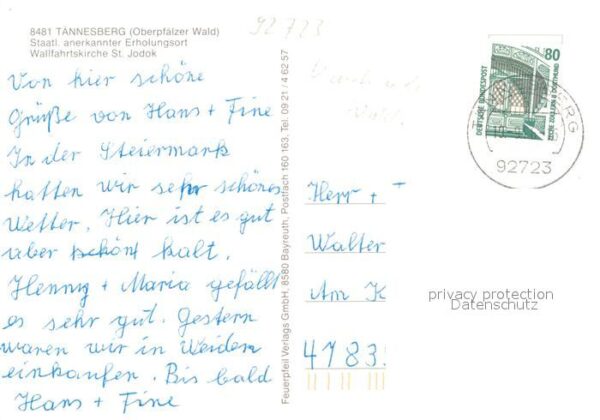 8481 TÄNNESBERG (Oberpfälzer Wald)
Staatl. anerkannter Erholungsort
Wallfahrtskirche St. Jodok
92723
Von hier schöne
Grüße von Hans + Fine
In der Steiermark
hatten wir sehr schönes
Wetter. Hier ist es gut
aber schön kalt.
Henny + Maria gefällt
es sehr gut. Gestern
waren wir in Weiden
einkaufen. Bis bald
Hans + Fine
Feuerpfeil Verlags GmbH, 8580 Bayreuth, Postfach 160 163, Tel. 09 21 / 4 62 57
80
DEUTSCHE BUNDESPOST
ZECHE ZOLLERN II DORTMUND
92723
Herr +
Walter
Am K
4783
privacy protection
Datenschutz